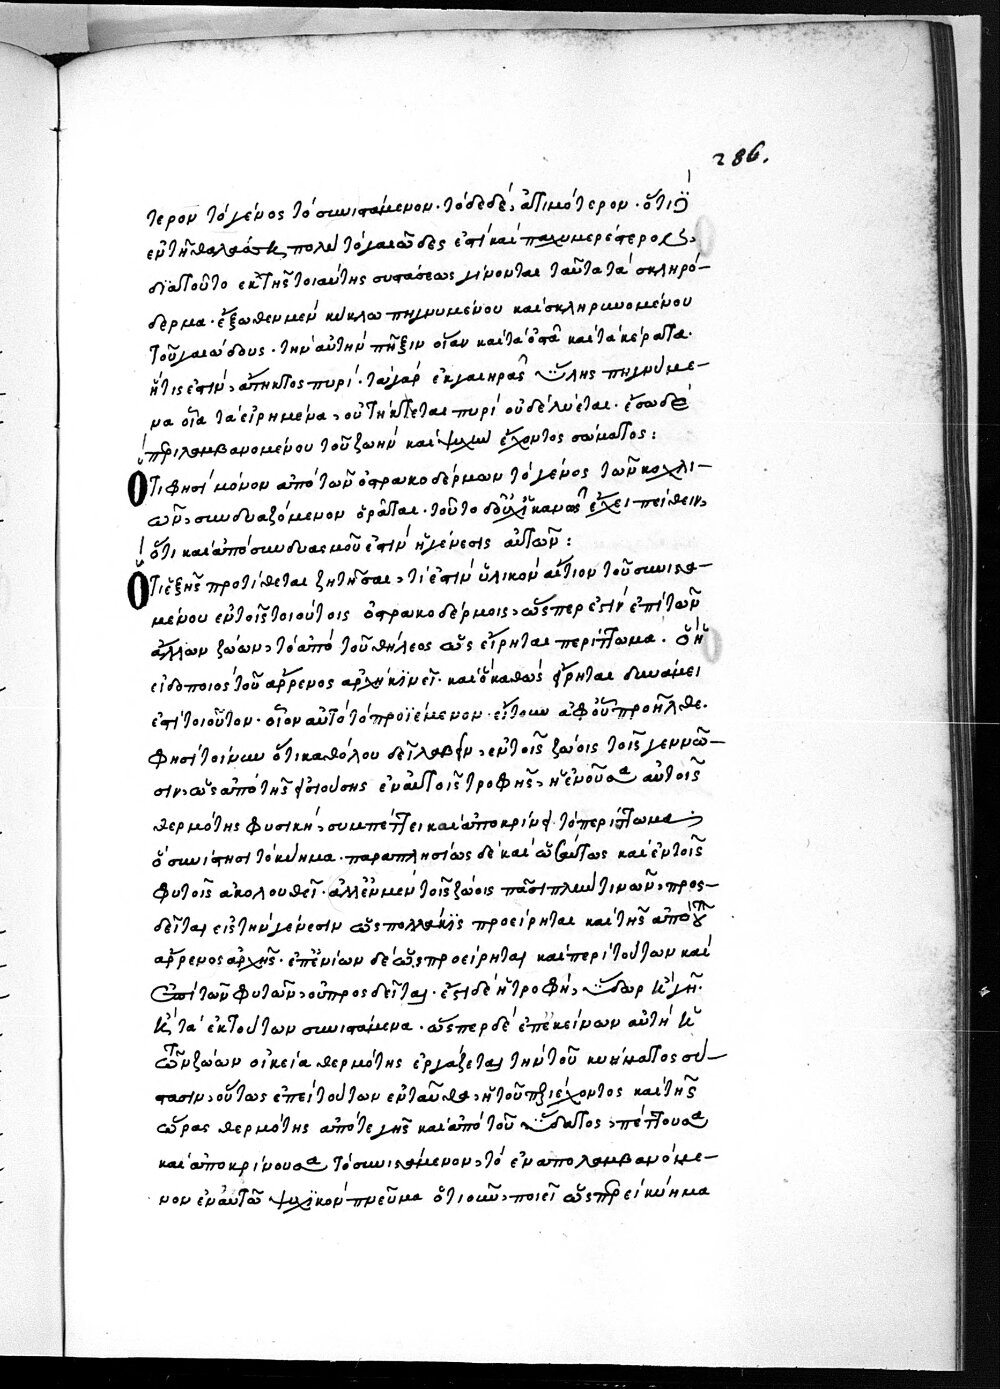 286.
τερον τὸ γένος τὸ συνιστάμενον· τὸ δὲ δέ, ἀτιμότερον· ὅτι
ἐν τῇ θαλάσσῃ πολὺ τὸ γαιῶδες ἐστὶ καὶ παχυμερέστερον,
διὰ τοῦτο ἐκ τῆς τοιαύτης συστάσεως γίνονται ταῦτα τὰ σκληρό-
δερμα· ἔξωθεν μὲν κύκλω πηγνυμένου καὶ σκληρυνομένου
τοῦ γαιώδους· τὴν αὐτὴν πῆξιν οἵαν καὶ τὰ ὀστᾶ καὶ τὰ κέρατα·
ἥτις ἐστὶν, ἄτηκτος πυρί· τὰ γὰρ ἐκ γαιηρᾶς ὕλης πηγνύμε-
να οἷα τὰ εἰρημένα, οὐ τήκεται πυρὶ οὐδὲ λύεται· ἔσω δὲ
περιλαμβανομένου τοῦ ζωὴν καὶ ψυχὴν ἔχοντος σώματος:
Ὅτι φησὶ μόνον ἀπὸ τῶν ὀστρακοδέρμων τὸ γένος τῶν κοχλι-
ῶν, συνδυαζόμενον ὁρᾶται· τοῦτο δὲ οὐχ ἱκανῶς ἔχει πείθειν,
ὅτι καὶ ἀπὸ συνδυασμοῦ ἐστὶν ἡ γένεσις αὐτῶν:
Ὅτι ἑξῆς προτίθεται ζητῆσαι, τί ἐστὶν ὑλικὸν αἴτιον τοῦ συνιστα-
μένου ἐν τοῖς τοιούτοις ὀστρακοδέρμοις, ὥσπερ ἐστὶν ἐπὶ τῶν
ἄλλων ζώων, τὸ ἀπὸ τοῦ θήλεος ὡς εἴρηται περίττωμα· ὃ ἡ
εἰδοποιὸς τοῦ ἄρρενος ἀρχὴ κινεῖ· καὶ ὃ καθὼς εἴρηται δυνάμει
ἐστὶ τοιοῦτον· οἷον αὐτὸ τὸ προϊέμενον· εἴτουν ἀφ' οὗ προῆλθε·
φησὶ τοίνυν ὅτι καθόλου δεῖ λαβεῖν, ἐν τοῖς ζώοις τοῖς γεννῶ-
σιν, ὡς ἀπὸ τῆς εἰσιούσης ἐν αὐτοῖς τροφῆς, ἡ ἐνοῦσα αὐτοῖς
θερμότης φυσική, συμπέττει καὶ ἀποκρίνει τὸ περίττωμα,
ὃ συνίστησι τὸ κύημα· παραπλησίως δὲ καὶ ὡσαύτως καὶ ἐν τοῖς
φυτοῖς ἀκολουθεῖ· ἀλλ' ἐν μὲν τοῖς ζώοις πᾶσι πλὴν τινῶν, προς-
δεῖται εἰς τὴν γένεσιν ὡς πολλάκις προείρηται καὶ τῆς ἀπὸ τοῦ
ἄρρενος ἀρχῆς· ἐπ' ἐνίων δὲ ὡς προείρηται καὶ περὶ τούτων καὶ
ἐπὶ τῶν φυτῶν, οὐ προσδεῖται· ἔστι δὲ ἡ τροφή, ὕδωρ καὶ γῆ·
καὶ τὰ ἐκ τούτων συνιστάμενα· ὥσπερ δὲ ἐπ' ἐκείνων αὐτὴ καὶ
τῶν ζώων οἰκεία θερμότης ἐργάζεται τὴν τοῦ κυήματος σύ-
στασιν, οὕτως ἐπεὶ τούτων ἐνταῦθα, ἡ τοῦ περιέχοντος καὶ τῆς
ὥρας θερμότης ἀπό τε γῆς καὶ ἀπὸ τοῦ ὕδατος, πέττουσα
καὶ ἀποκρίνουσα τὸ συνιστάμενον, τὸ ἐναπολαμβανόμε-
νον ἐν αὐτῶ ψυχικὸν πνεῦμα ὅτι οὖν, ποιεῖ ὡσπερεὶ κύημα